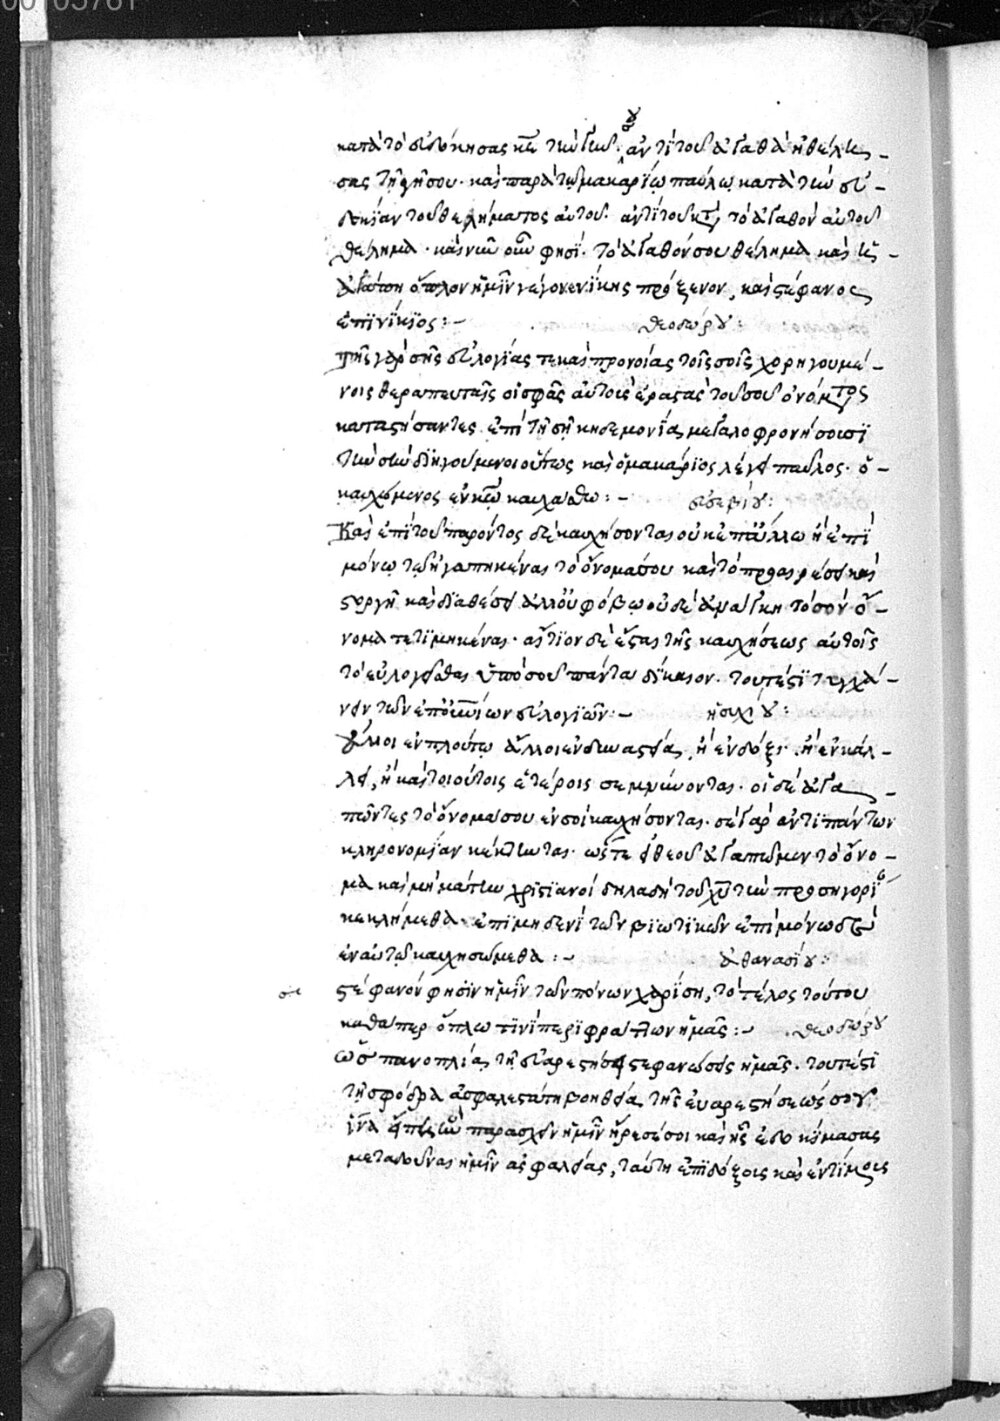 00105761
κατὰ τὸ εὐδόκησας κ̅ε̅ τὴν γῆν σου· ἀντὶ τοῦ ἀγαθὰ ἠθέλη-
σας τῇ γῇ σου· καὶ παρὰ τῷ μακαρίῳ παύλῳ κατὰ τὴν εὐ-
δοκίαν τοῦ θελήματος αὐτοῦ· ἀντὶ τοῦ κατὰ τὸ ἀγαθὸν αὐτοῦ
θέλημα· καὶ νῦν οὖν φησί· τὸ ἀγαθόν σου θέλημα καὶ ἡ
ἀγάπη ὅπλον ἡμῖν γέγονε νίκης πρόξενον, καὶ στέφανος
ἐπινίκιος:- θεοδώρου:
τῆς γὰρ σῆς εὐλογίας τε καὶ προνοίας τοῖς σοῖς χορηγουμέ-
νοις θεραπευταῖς οἱ σφᾶς αὐτοὺς ἐραστὰς τοῦ σοῦ ὀνόματος
καταστήσαντες ἐπὶ τῇ σῇ κηδεμονίᾳ μεγαλοφρονήσουσι
τὴν σὴν διηγούμενοι οὕτως καὶ ὁ μακάριος λέγει παῦλος· ὁ
καυχώμενος ἐν κ̅ω̅ καυχάσθω:- εὐσεβίου:
Καὶ ἐπὶ τοῦ παρόντος δὲ καυχήσονται οὐκ ἐπ' ἄλλῳ ἢ ἐπὶ
μόνῳ τῷ ἠγαπηκέναι τὸ ὄνομά σου καὶ τὸ προαιρέσει καὶ
στοργῇ καὶ διαθέσει ἀλλ' οὐ φόβῳ οὐδὲ ἀνάγκῃ τὸ σὸν ὄ-
νομα τετιμηκέναι· αἴτιον δὲ ἔσται τῆς καυχήσεως αὐτοῖς
τὸ εὐλογεῖσθαι ὑπὸ σοῦ πάντα δίκαιον· τουτέστι τυγχά-
νειν τῶν ἐπουρανίων εὐλογιῶν:- ἡσυχίου:
ἄλλοι ἐν πλούτῳ ἄλλοι ἐν δυναστείᾳ, ἢ ἐν δόξῃ· ἢ ἐν κάλ-
λει, ἢ καὶ τοιούτοις ἑτέροις σεμνύνονται· οἱ δὲ ἀγα-
πῶντες τὸ ὄνομά σου ἐν σοὶ καυχήσονται· σὲ γὰρ ἀντὶ πάντων
κληρονομίαν κέκτηνται· ὥστε εἰ θεοῦ ἀγαπῶμεν τὸ ὄνο-
μα καὶ μὴ μάτην χριστιανοὶ δηλαδὴ τοῦ χ̅υ̅ τὴν προσηγορίαν
κεκλήμεθα· ἐπὶ μηδενὶ τῶν βιωτικῶν ἐπὶ μόνῳ δὲ
ἐν αὐτῷ καυχησώμεθα:- ἀθανασίου:
στέφανόν φησιν ἡμῖν τῶν πόνων χαρίσῃ, τὸ τέλος τούτου
καθάπερ ὅπλῳ τινὶ περιφράττων ἡμᾶς:- θεοδώρου
ὡς πανοπλίᾳ τῇ εὐαρεστήσει στεφανώσεις ἡμᾶς· τουτέστι
τῇ σφόδρα ἀσφαλεστάτῃ βοηθείᾳ τῆς εὐαρεστήσεώς σου
παρασχεῖν ἡμῖν ἤρεσέ σοι καὶ ἧς ἐδοκίμασας
μεταδοῦναι ἡμῖν ἀσφαλείας, ταύτῃ ἐπιδόξοις καὶ ἐντίμοις